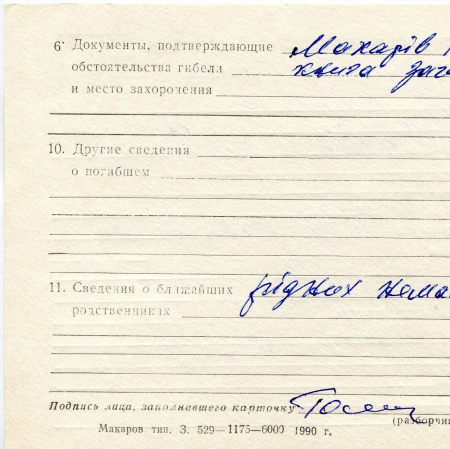 6. Документы, подтверждающие Макарів
обстоятельства гибели книга
и место захоронения
10. Другие сведения
о погибшем
11. Сведения о ближайших рідних нема
родственниках
Подпись лица, заполнившего карточку
(разборчи
Макаров тип. З. 529—1175—6000 1990 г.